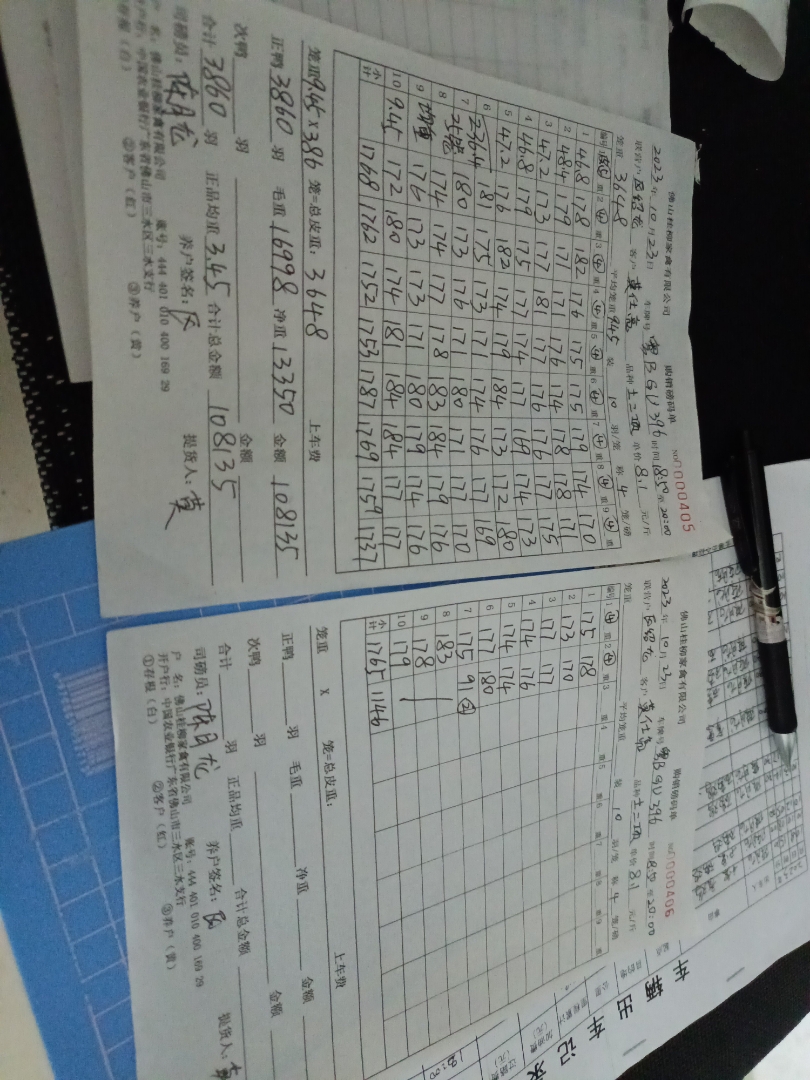 佛山桂柳家禽有限公司
鸭销磅码单
NO 0000405
2023年10月23日 车牌号 粤BGU396 时间 18:50至20:00
联营户 客户 黄仕 品种 土二 单价 8.1 元/斤
笼重 3648 平均笼重 9.45 装 10 羽/笼 称 4 笼/磅
编号 1 重 2 ④ 重 3 ④ 重 4 ④ 重 5 ④ 重 6 ④ 重 7 ④ 重 8 ④ 重 9 ④ 重
1 46.8 178 182 176 175 175 179 174 170
2 48.4 179 171 171 176 174 178 178 171
3 47.2 173 177 181 177 176 176 177 175
4 46.8 179 175 177 174 171 169 174 173
5 47.2 176 182 174 179 184 173 172 180
6 236.4 181 175 173 171 174 176 171 169
7 180 173 176 171 180 171 177 170
8 174 174 177 178 183 184 179 176
9 176 173 173 171 180 179 174 176
10 9.45 172 180 174 181 184 184 177 177
小计 1768 1762 1752 1753 1787 1769 1759 1737
笼重 9.45 x 386 笼=总皮重: 3648 上车费
正鸭 3860 羽 毛重 16998 净重 13350 金额 108135
次鸭 羽 金额
合计 3860 羽 正品均重 3.45 合计总金额 108135
司磅员: 陈月龙 养户签名: 提货人: 黄
户 名: 佛山桂柳家禽有限公司 账号: 444 401 010 400 169 29
开户行: 中国农业银行广东省佛山市三水区三水支行
(白) ②客户(红) ③养户(黄)
佛山桂柳家禽有限公司
鸭销磅码单
NO 0000406
2023年10月23日 车牌号 粤BGU396 时间 18:50至20:00
联营户 客户 黄仕 品种 土二 单价 8.1 元/斤
笼重 平均笼重 装 10 羽/笼 称 4 笼/磅
编号 1 ④ 重 2 ④ 重 3 重 4 重 5 重 6 重 7 重 8 重 9 重
1 175 178
2 173 170
3 177 177
4 174 176
5 174 174
6 177 180
7 175 91 ②
8 183
9 178
10 179
小计 1765 1146
笼重 x 笼=总皮重: 上车费
正鸭 羽 毛重 净重 金额
次鸭 羽 金额
合计 羽 正品均重 合计总金额
司磅员: 陈月龙 养户签名: 提货人:
户 名: 佛山桂柳家禽有限公司 账号: 444 401 010 400 169 29
开户行: 中国农业银行广东省佛山市三水区三水支行
①存根(白) ②客户(红) ③养户(黄)
车辆出车记录